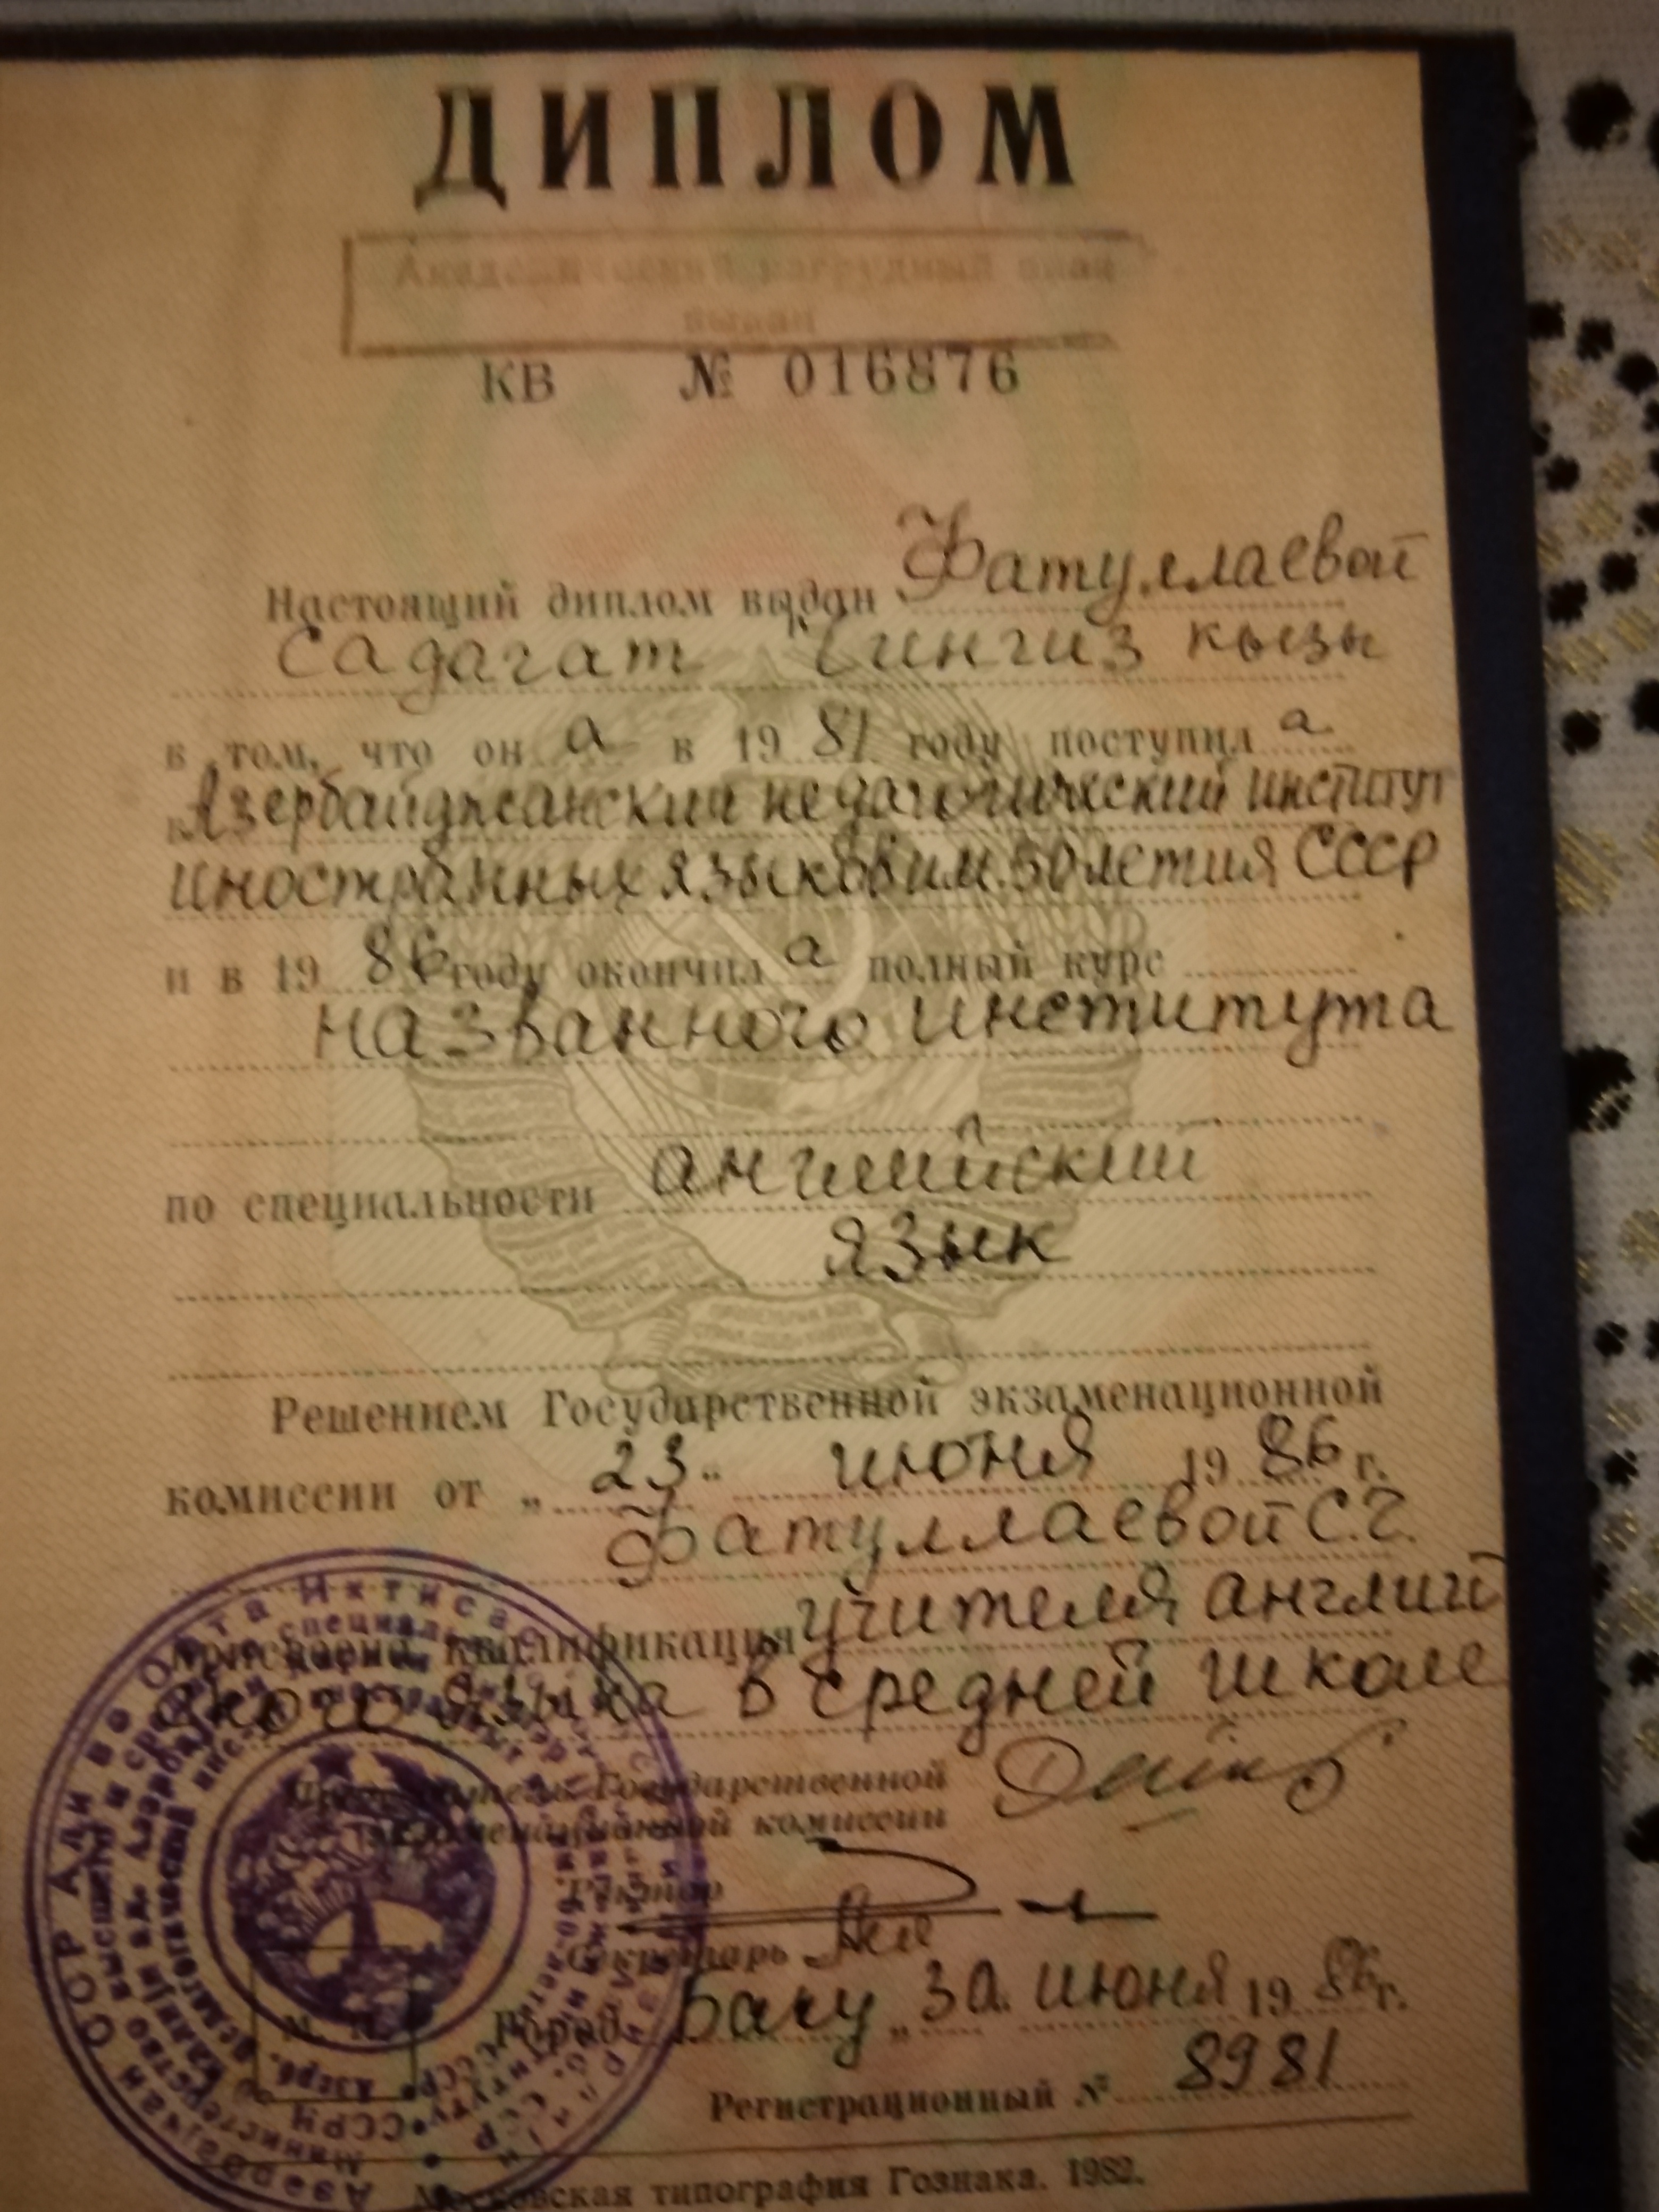 ДИПЛОМ
Академический нагрудный знак
выдан
КВ № 016876
Настоящий диплом выдан Фатуллаевой
Садагат Чингиз кызы
в том, что он а в 19 81 году поступил а
в Азербайджанский педагогический институт
иностранных языков им. 50 летия СССР
и в 19 86 году окончил а полный курс
названного института
по специальности английский
язык
Решением Государственной экзаменационной
комиссии от „ 23 “ июня 19 86 г.
Фатуллаевой С.Ч.
присвоена квалификация учителя англий
ского языка в средней школе
Председатель Государственной
экзаменационной комиссии
Ректор
Секретарь
М. П. Город Баку „ 30. июня 19 86 г.
Регистрационный № 8981
Московская типография Гознака. 1982.